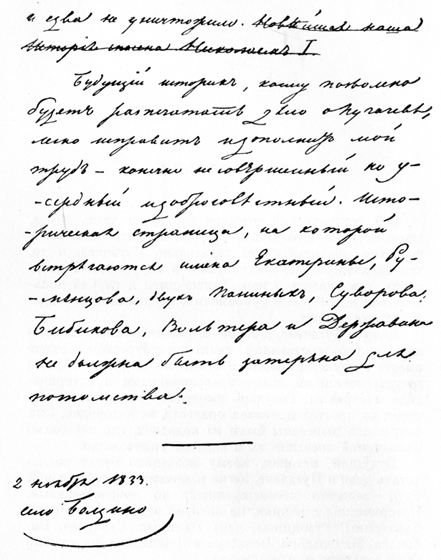 и едва не уничтожило. Новѣйшая наша
Исторія полна Николаемъ I.
Будущій историкъ, коему позволено
будетъ распечатать дѣло о Пугачевѣ,
легко исправитъ и дополнитъ мой
трудъ — конечно несовершенный но у-
-сердный и добросовѣстный. Исто-
-рическая страница, на которой
встрѣчаются имена Екатерины, Ру-
-мянцова, двухъ Паниныхъ, Суворова,
Бибикова, Вольтера и Державина
не должна быть затеряна для
потомства.
2 ноября 1833.
село Болдино